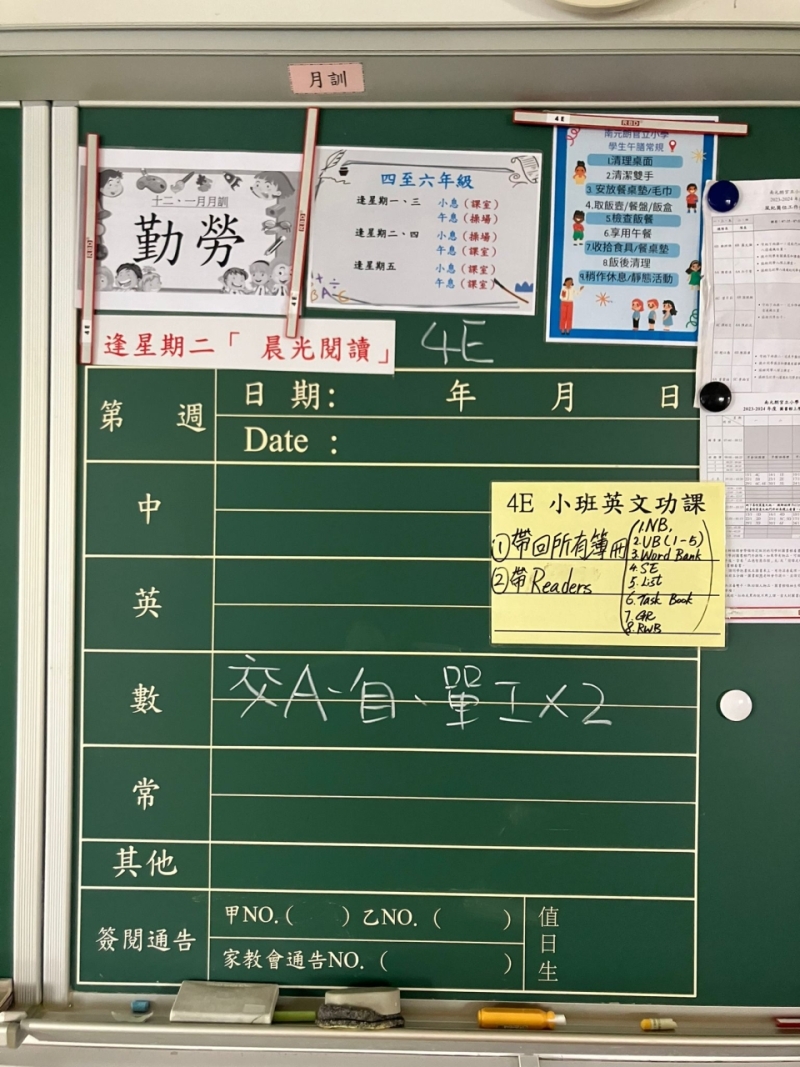 月訓
十二、一月月訓
勤勞
四至六年級
逢星期一、三 小息（課室）
午息（操場）
逢星期二、四 小息（操場）
午息（課室）
逢星期五 小息（課室）
午息（課室）
4E
RED
南元朗官立小學
學生午膳常規
1.清理桌面
2.清潔雙手
3.安放餐桌墊/毛巾
4.取飯壺/餐盤/飯盒
5檢查飯餐
6.享用午餐
7.收拾食具/餐桌墊
8.飯後清理
9.稍作休息/靜態活動
逢星期二「 晨光閱讀」
4E
第 週
日 期： 年 月 日
Date :
中
英
數
交A-自、單工X2
常
其他
簽閱通告
甲NO.( ) 乙NO. ( )
家教會通告NO. ( )
值日生
4E 小班英文功課
①帶回所有簿冊
②帶Readers
1.NB,
2.UB(1-5)
3.Word Bank
4.SE
5.List
6.Task Book
7.GR
8.RWB
南元朗官立小學
2023-2024